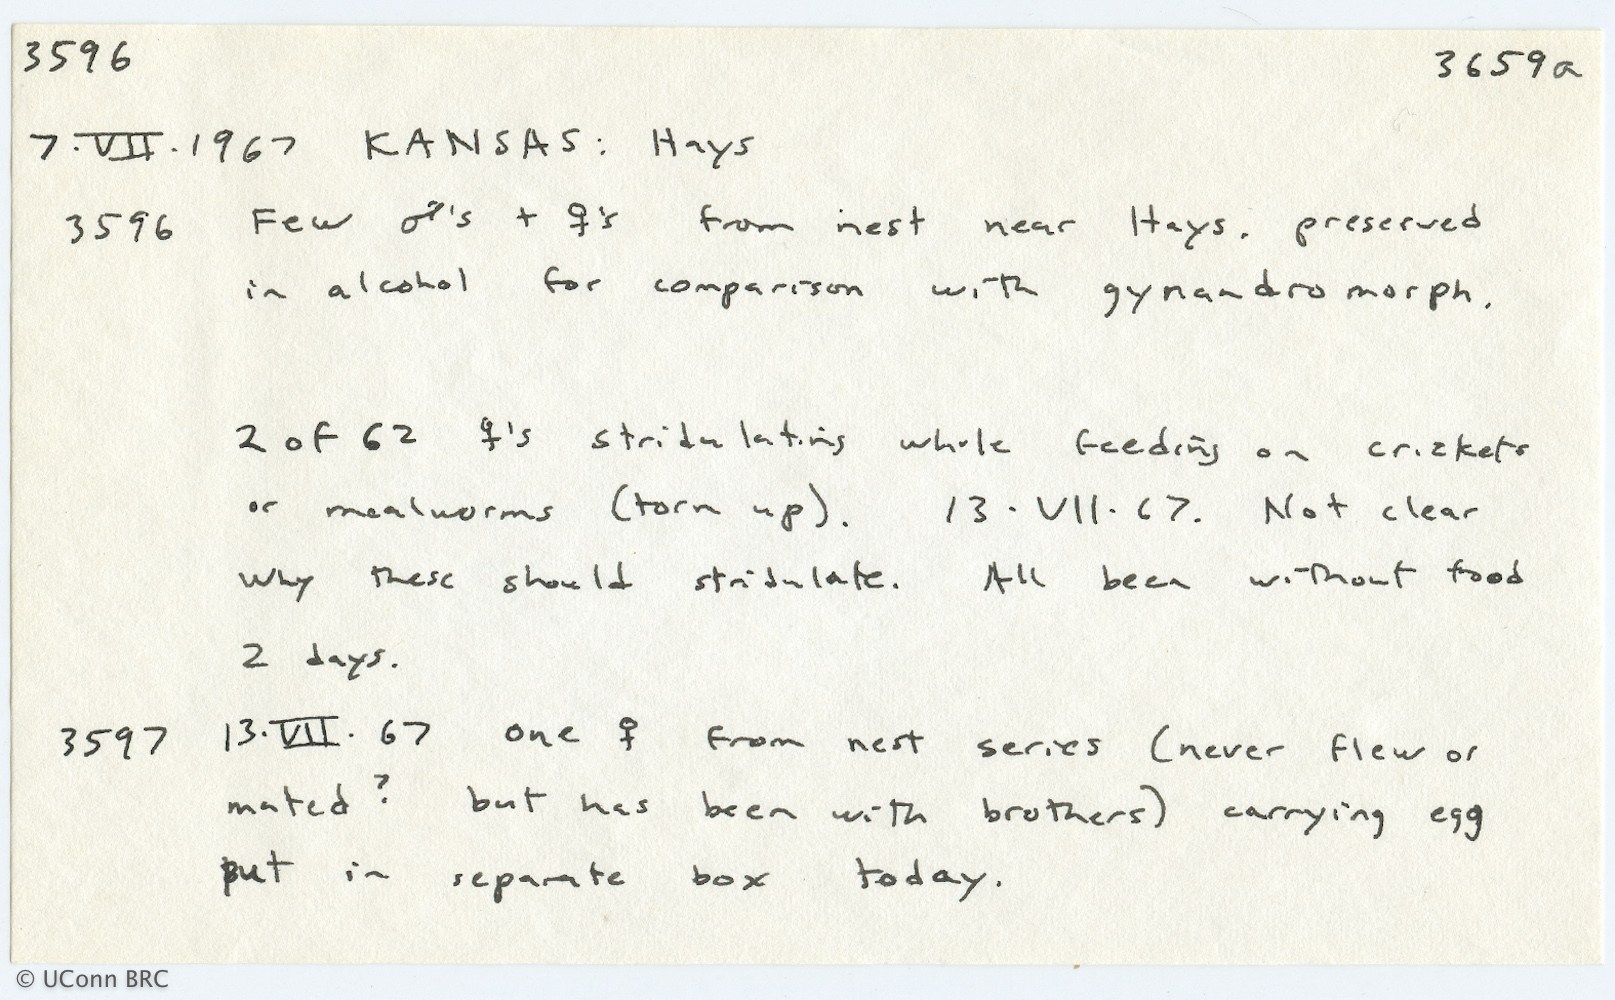 3596 3659a
7·VII·1967 KANSAS: Hays
3596 Few ♂'s + ♀'s from nest near Hays. preserved
in alcohol for comparison with gynandromorph.
2 of 62 ♀'s stridulating while feeding on crickets
or mealworms (torn up). 13·VII·67. Not clear
why these should stridulate. All been without food
2 days.
3597 13·VII·67 one ♀ from nest series (never flew or
mated? but has been with brothers) carrying egg
put in separate box today.
© UConn BRC